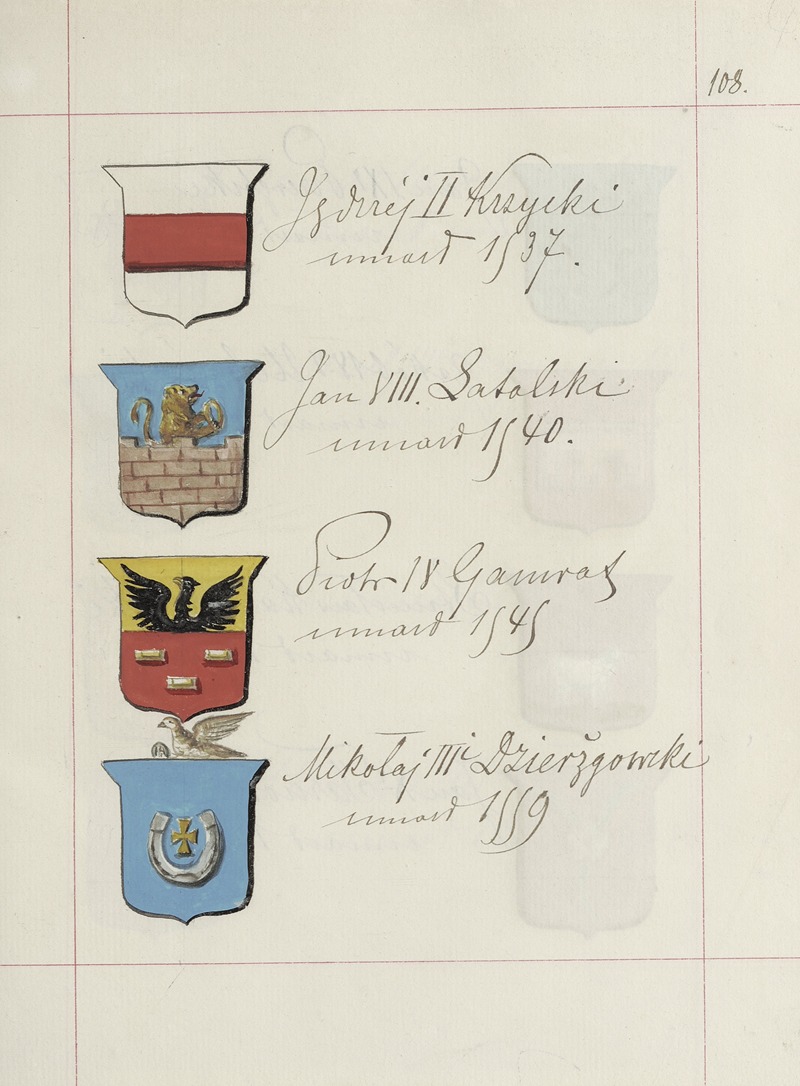 108.
Jędrzéj II Krzycki
umarł 1537.
Jan VIII. Latalski
umarł 1540.
Piotr IV Gamrat
umarł 1545
Mikołaj IIIi Dzierżgowski
umarł 1559